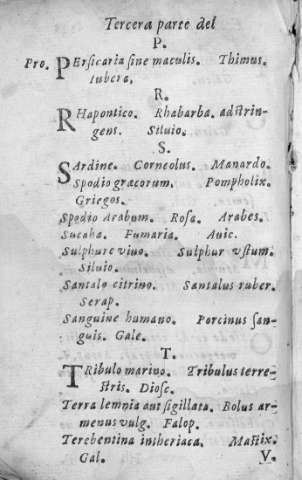 Tercera parte del
P.
Pro. PErsicaria sine maculis. Thimus.
tubera.
R.
RHapontico. Rhabarba. adstrin-
gens. Siluio.
S.
SArdine. Corneolus. Manardo.
Spodio græcorum. Pompholix.
Griegos.
Spodio Arabum. Rosa. Arabes.
Sucaha. Fumaria. Auic.
Sulphure viuo. Sulphur vstum.
Siluio.
Santalo citrino. Santalus ruber.
Serap.
Sanguine humano. Porcinus san-
guis. Gale.
T.
TRibulo marino. Tribulus terre-
stris. Diosc.
Terra lemnia aut sigillata. Bolus ar-
menus vulg. Falop.
Terebentina intheriaca. Mastix.
Gal. V.